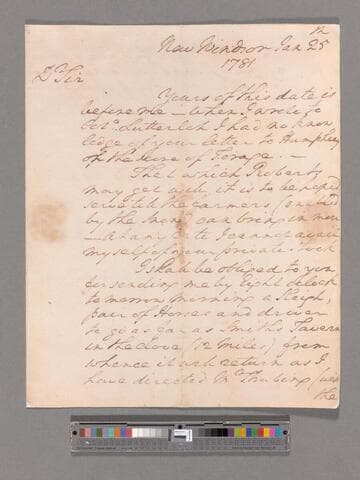 12
New Windsor Jan 25
1781
Dr Sir
Yours of this date is
before me – When I wrote to
Colo. I had no know
ledge of your letter to Humphrey
on the score of Forage. —
That which Roberts
may get will, it is to be hoped
serve till the Farmers
by the Snow can bring in more
— at any rate I cannot avail
myself of your private stock
I shall be obliged to you
for sending me by eight Oclock
to morrow morning a Sleigh,
pair of Horses and driver
to go as far as Smiths Tavern
in the Clove (12 miles) from
whence it will return as I
have directed Mr
the